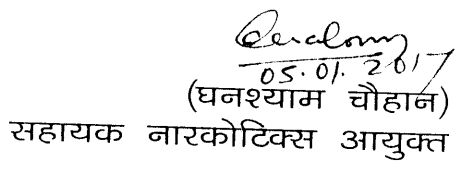 05.01.2017
(घनश्याम चौहान)
सहायक नारकोटिक्स आयुक्त